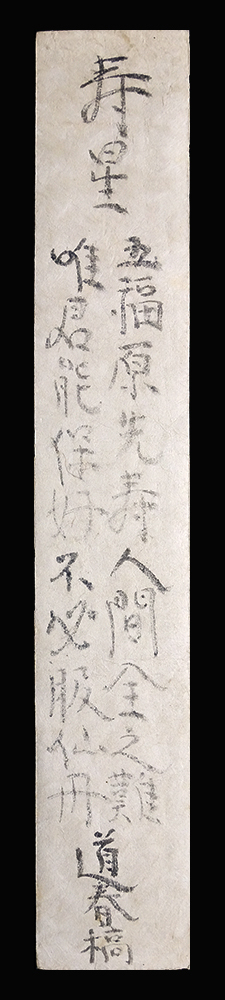 寿星
五福原先寿人間全之難
唯君能保好不必服仙丹
道春稿